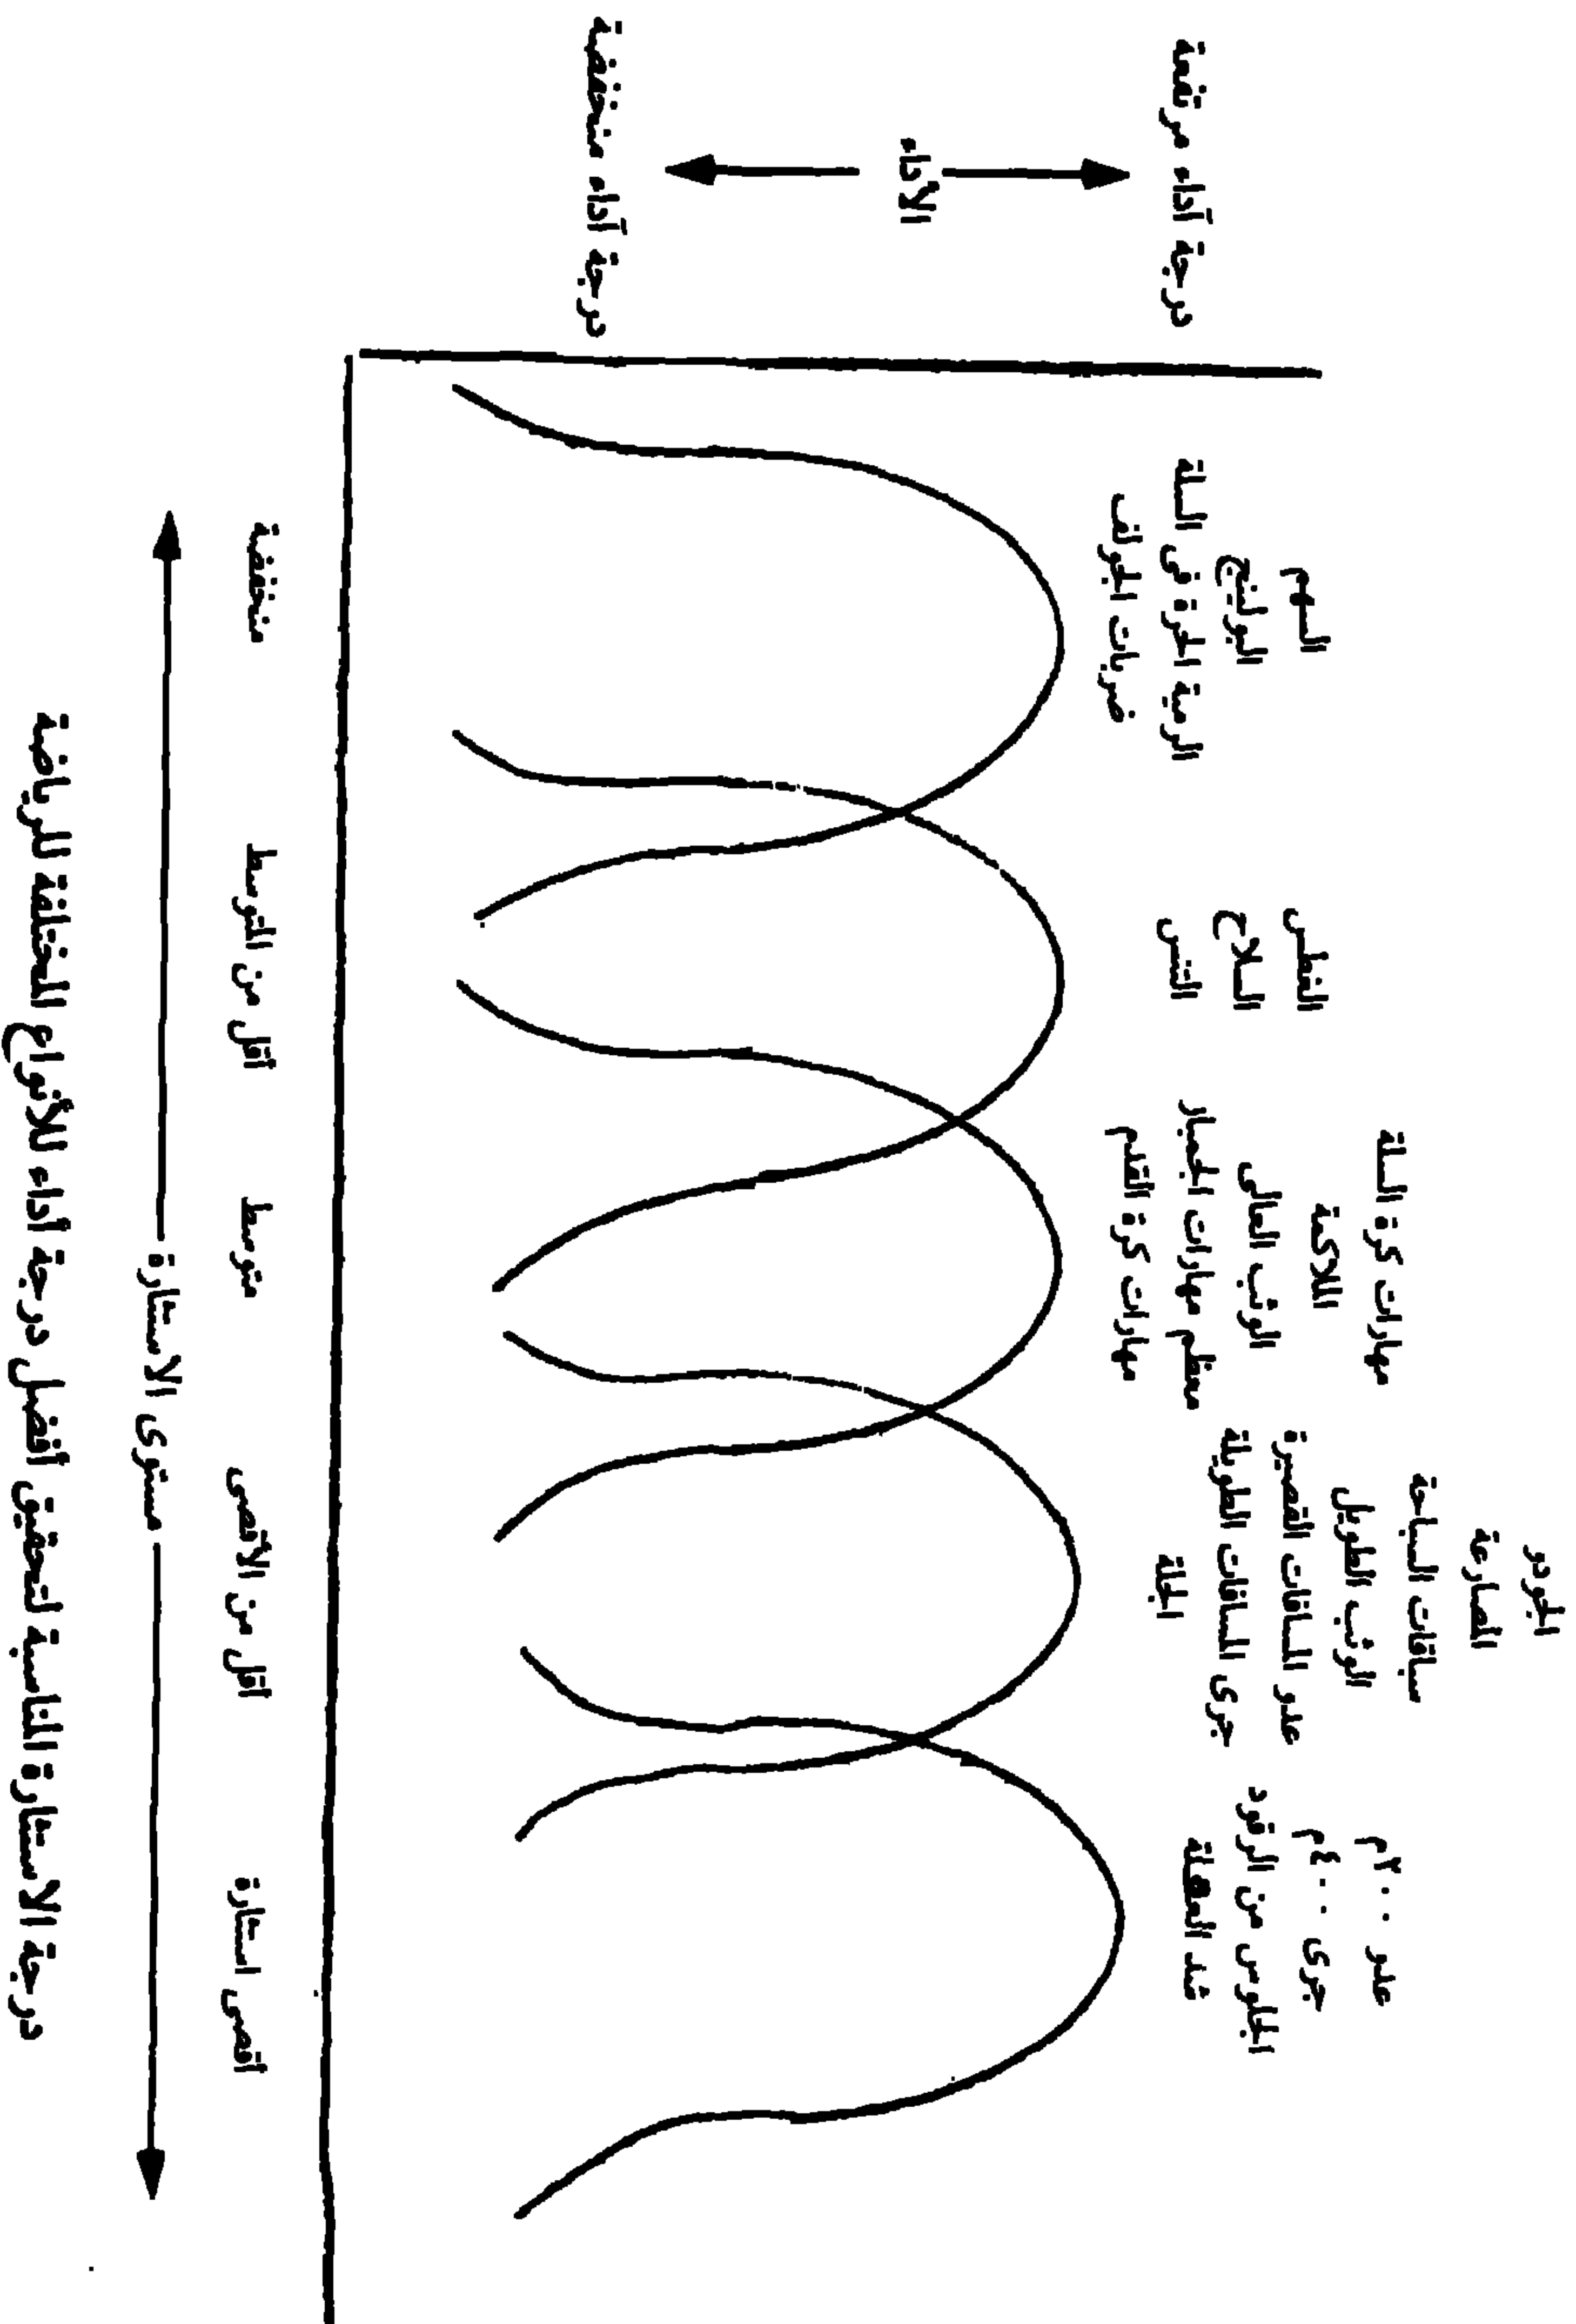 درجة أداء مرتفعة
الأداء
درجة أداء منخفضة
السهم
البولينج
الرمية الحرة فى السلة
ضربات الجولف
الغطس
السلاح
التنس
مهارات كرة السلة
الملاكمة
الوثب العالى
معظم مهارات الجمباز
مهارات كرة القدم
الجودو
المصارعة
سباقات السباحة
الوثب الطويل
عدو المسافات القصيرة
جرى المسافات الطويلة
الجلة
عدو ٢٠٠م
جرى ٤٠٠م
الجلوس من الرقود
شد العقلة
منخفضة
أقل من المتوسط
متوسط
أقل من الأقصى
أقصى استثارة
مستوى الاستثارة
درجة الاستثارة المناسبة لتحقيق أفضل درجة أداء للأنواع المختلفة للرياضة